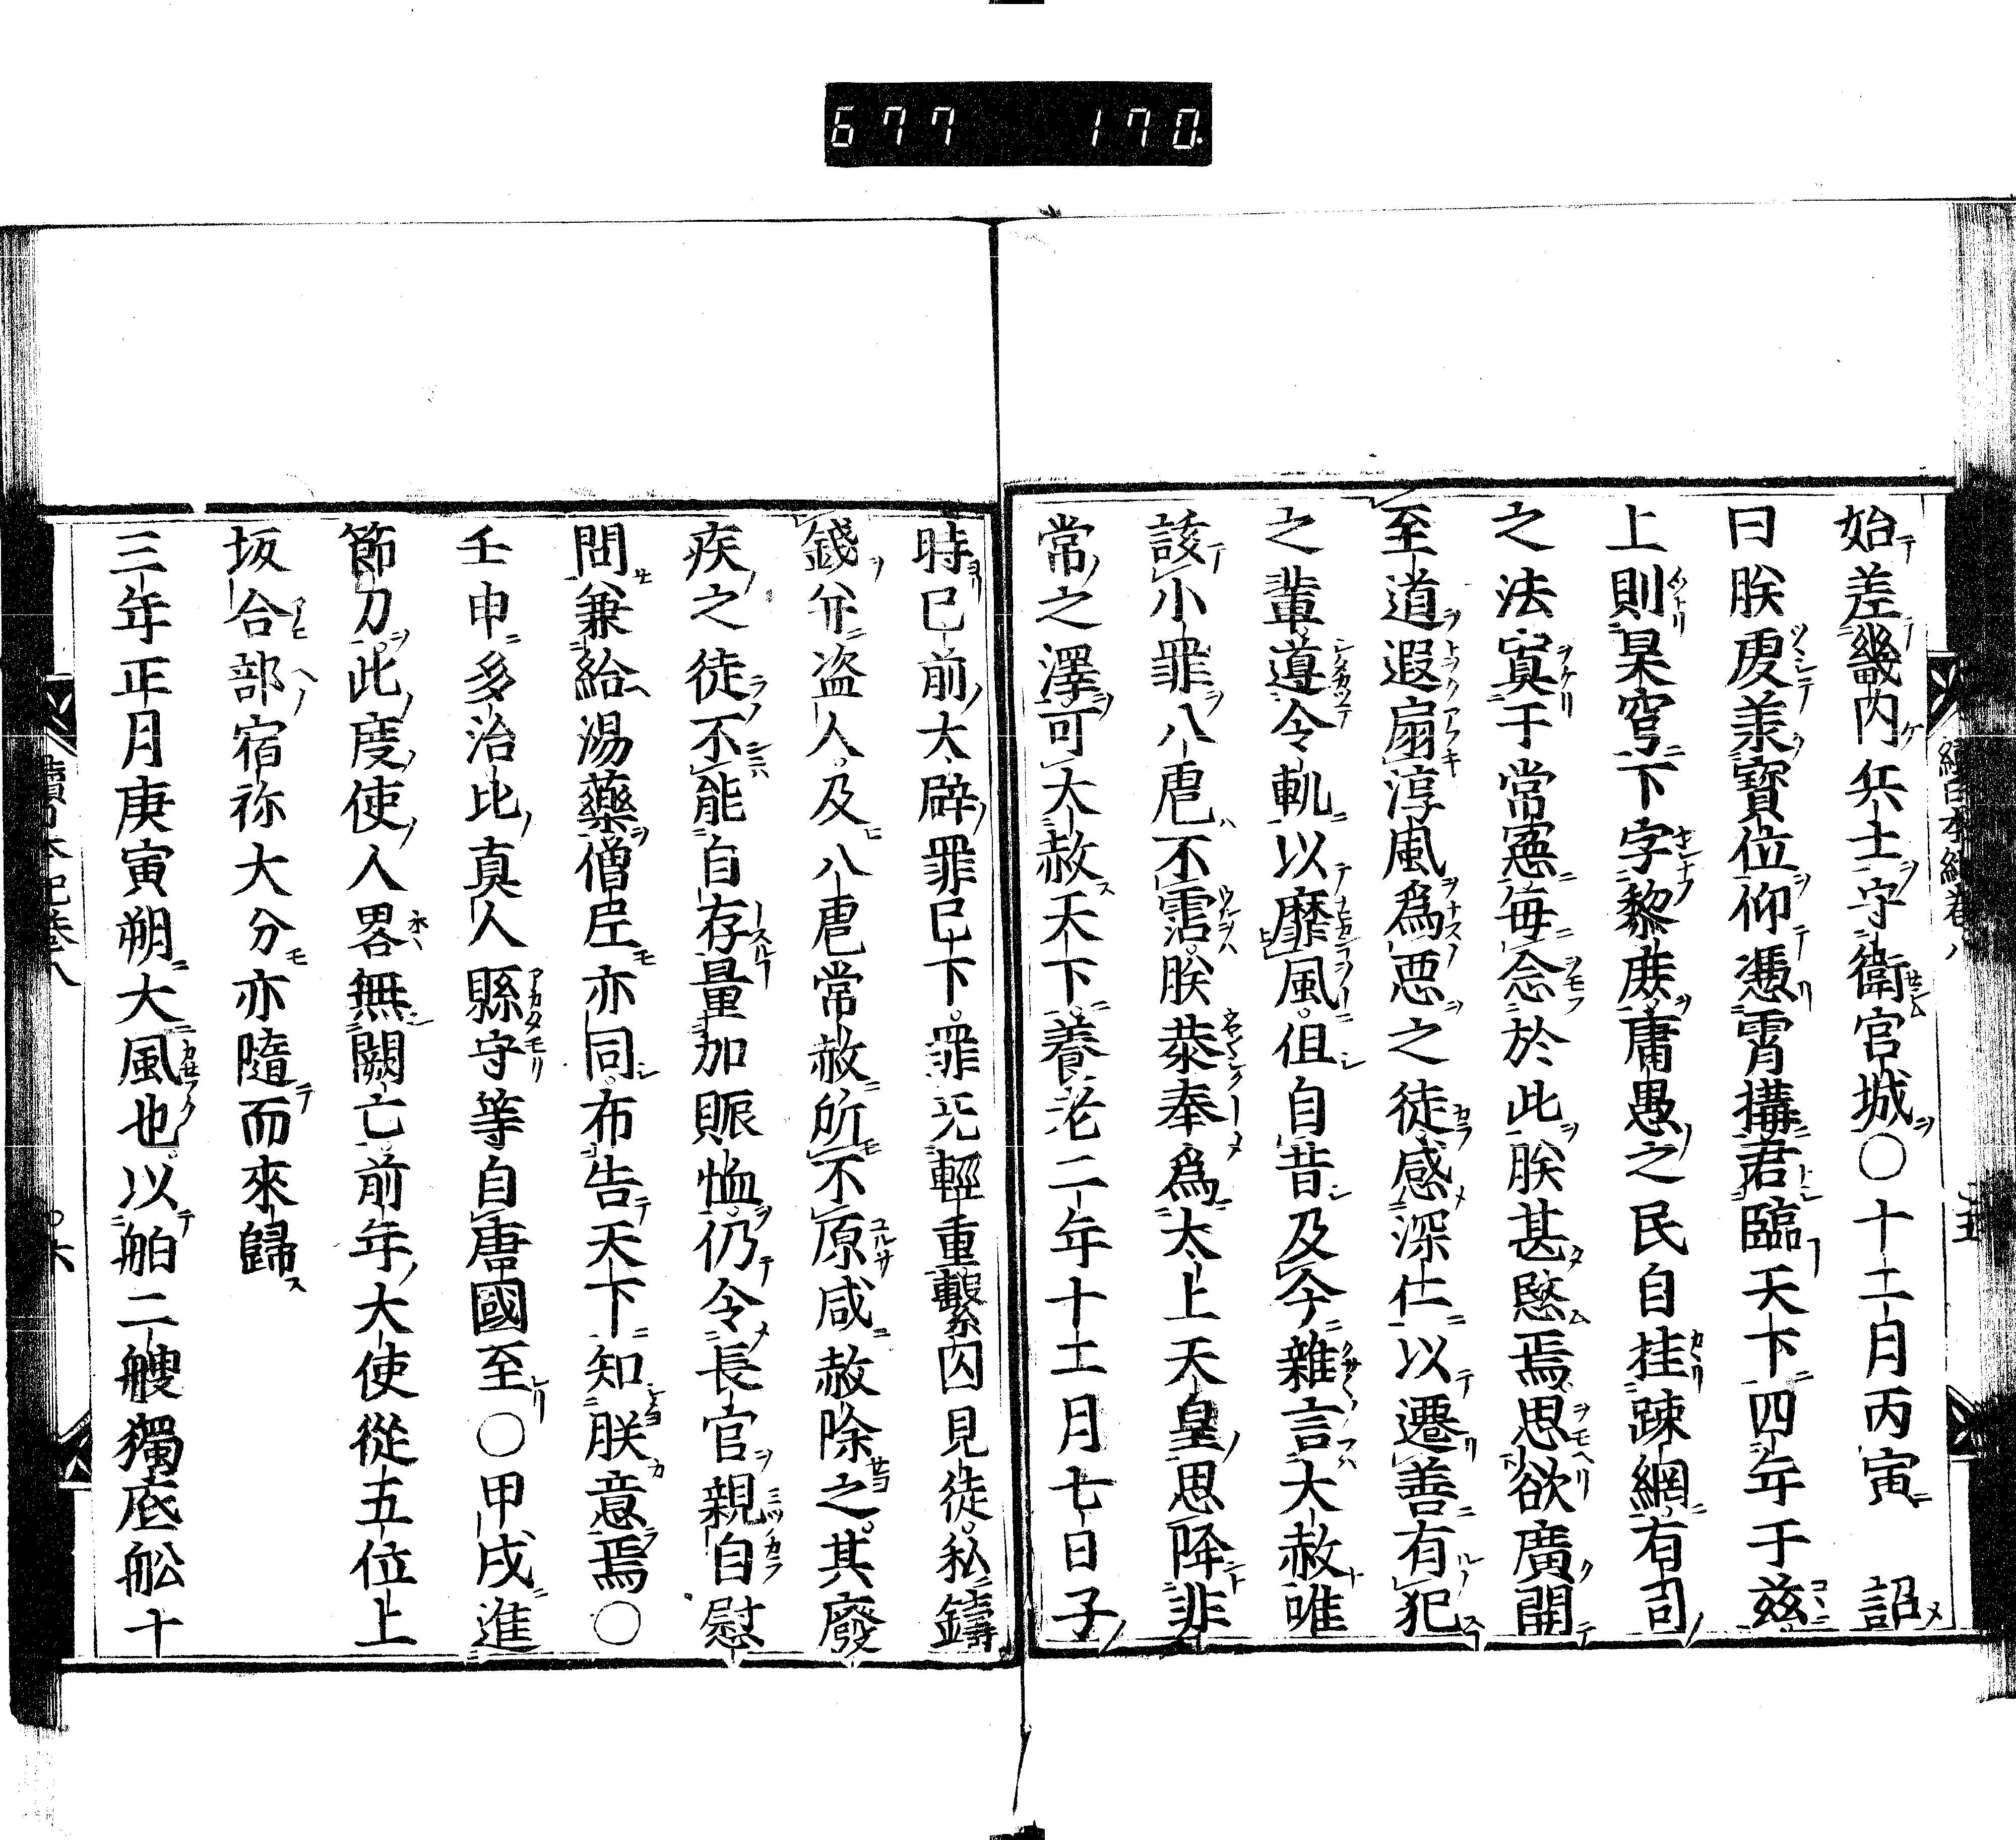 677 170
始差畿内兵士守衛宮城〇十二月丙寅 詔
曰朕虔羕寶位仰憑霄構君臨天下四年于玆
上則昊穹下字黎庶庸愚之民自挂疎網有司
之法寘于常憲每念於此朕甚愍焉思欲廣開
至道遐扇淳風爲惡之徒感深仁以遷善有犯
之輩遵令軌以靡風但自昔及今雜言大赦唯
該小罪八虐不霑朕恭奉爲太上天皇思降非
常之澤可大赦天下養老二年十二月七日子
時已前大辟罪已下罪无輕重繫囚見徒私鑄
錢幷盗人及八虐常赦所不原咸赦除之其廢
疾之徒不能自存量加賑恤仍令長官親自慰
問兼給湯藥僧尼亦同布告天下知朕意焉〇
壬申多治比真人縣守等自唐國至〇甲戌進
節刀此度使人畧無闕亡前年大使從五位上
坂合部宿祢大分亦隨而來歸
三年正月庚寅朔大風也以舶二艘獨底舩十